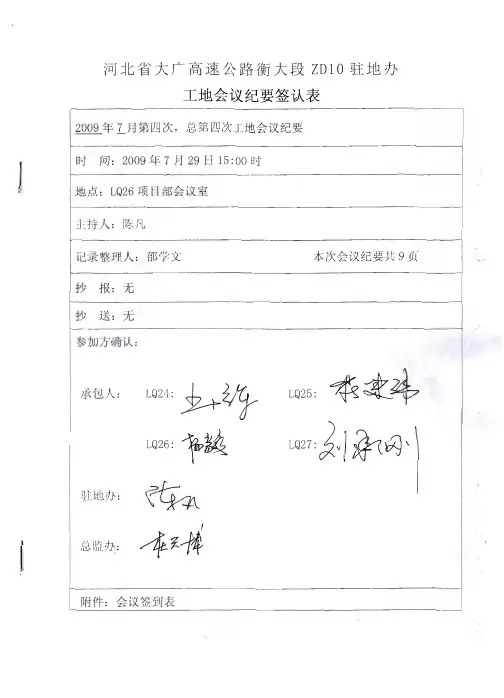 河北省大广高速公路衡大段 ZD10 驻地办
工地会议纪要签认表
2009 年 7 月第四次，总第四次工地会议纪要
时　间：2009 年 7 月 29 日 15:00 时
地点：LQ26 项目部会议室
主持人：陈凡
记录整理人：邵学文 本次会议纪要共 9 页
抄　报：无
抄　送：无
参加方确认：
承包人： LQ24: LQ25:
LQ26: LQ27: 刘
驻地办： 陈凡
总监办：
附件：会议签到表